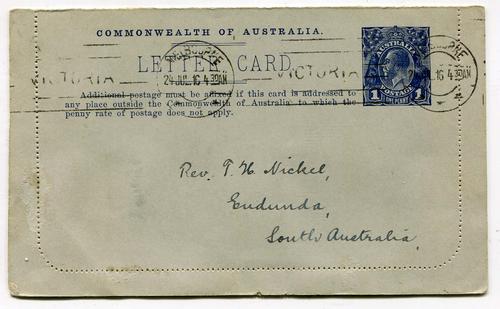 COMMONWEALTH OF AUSTRALIA.
LETTER CARD.
MELBOURNE
24 JUL.16 4 30AM
VICTORIA
VICTORIA
AUSTRALIA
1 POSTAGE 1
ONE PENNY
Additional postage must be affixed if this card is addressed to
any place outside the Commonwealth of Australia to which the
penny rate of postage does not apply.
Rev. T. H. Nickel,
Eudunda,
South Australia.